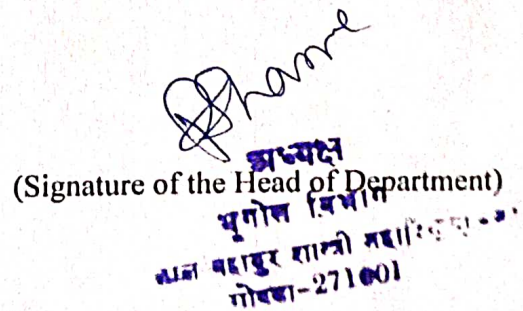 अध्यक्ष
(Signature of the Head of Department)
भूगोल विभाग
लाल बहादुर शास्त्री
गोण्डा-271001